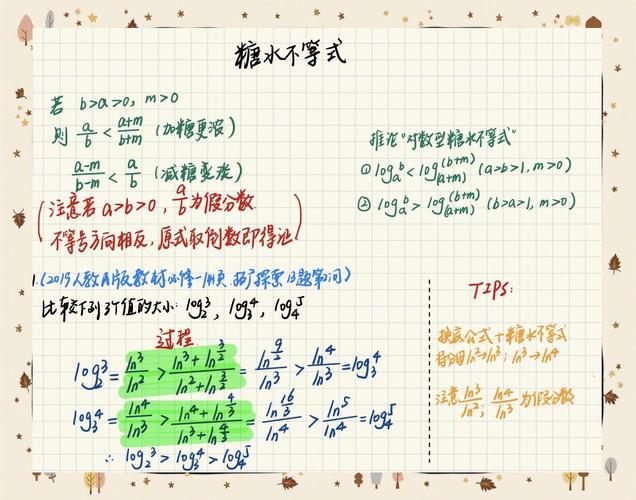 糖水不等式
若 b>a>0, m>0
则 a/b < (a+m)/(b+m) (加糖更浓)
(a-m)/(b-m) < a/b (减糖变淡)
(注意若 a>b>0, a/b 为假分数
不等号方向相反, 原式取倒数即得证)
推论"对数型糖水不等式"
① log_a^b < log_(a+m)^(b+m) (a>b>1, m>0)
② log_a^b > log_(a+m)^(b+m) (b>a>1, m>0)
1.(2019人教A版教材必修一 页, 拓广探索13题第 问)
比较下列3个值的大小: log_2^3, log_3^4, log_4^5
过程
log_2^3 = ln3/ln2 > (ln3+ln 3/2)/(ln2+ln 3/2) = (ln 9/2)/ln3 > ln4/ln3 = log_3^4
log_3^4 = ln4/ln3 > (ln4+ln 4/3)/(ln3+ln 4/3) = (ln 16/3)/ln4 > ln5/ln4 = log_4^5
∴ log_2^3 > log_3^4 > log_4^5
TIPS:
换底公式+糖水不等式
将分母ln2→ln3; ln3→ln4
注意 ln3/ln2; ln4/ln3 为假分数